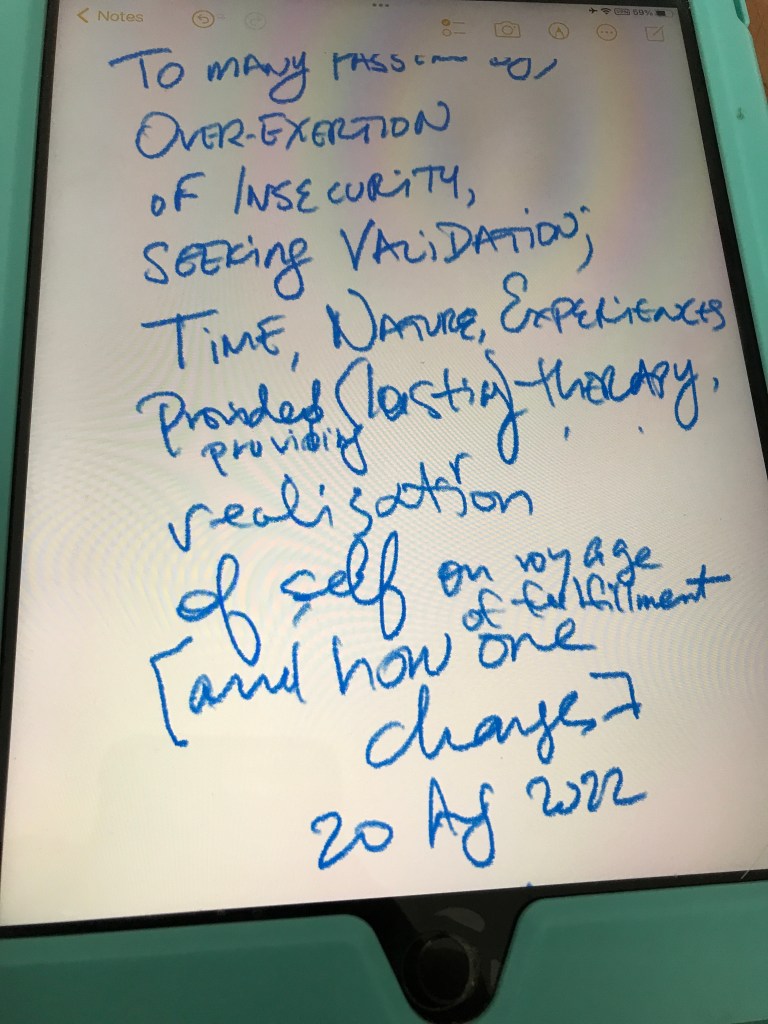 Notes
59%
TO MANY
OVER-EXERTION
OF INSECURITY,
SEEKing VALiDATION;
TiME, NATURE, EXPERiENCES
Provided (lasting) tHERAPY,
providing
realization
of self on voyage
of fulfillment
[and how one
changes]
20 Ag 2022